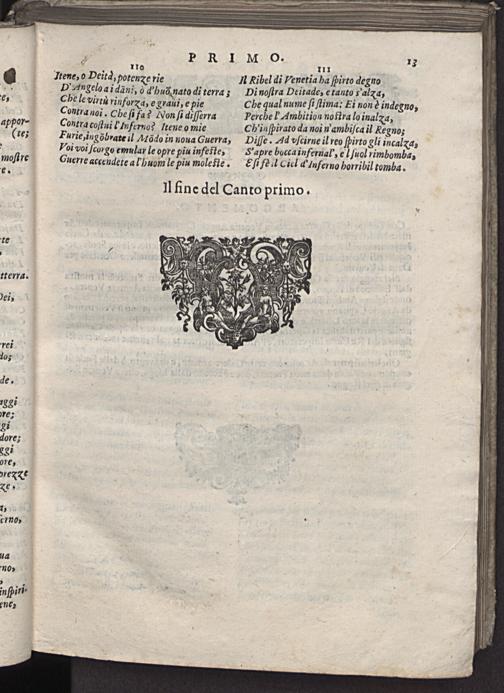 PRIMO. 13
110
Itene, o Deità, potenze rie
D'Angelo ai dãni, ò d'huõ, nato di terra;
Che le virtù rinforza, e graui, e pie
Contra noi. Che si fa? Non si disserra
Contra costui l'Inferno? Itene o mie
Furie, ingõbrate il Mõdo in noua Guerra,
Voi voi scorgo emular le opre piu infeste.
Guerre accendete al'huom le piu moleste.
111
Il Ribel di Venetia ha spirto degno
Di nostra Deitade, e tanto s'alza,
Che qual nume si stima: Ei non è indegno,
Perche l'Ambition nostra lo inalza,
Ch'inspirato da noi n'ambisca il Regno;
Disse. Ad vscirne il reo spirto gli incalza,
S'apre bocca infernal', e'l suol rimbomba,
E si fè il Ciel d'Inferno horribil tomba.
Il fine del Canto primo.
appor-
(te;
mostre
tterra.
Dei,
rrei
do;
de.
aggi
ore;
gi
dore;
ggi
ore,
prezze
ze.
erno,
ua
rno,
inspiri-
ene,